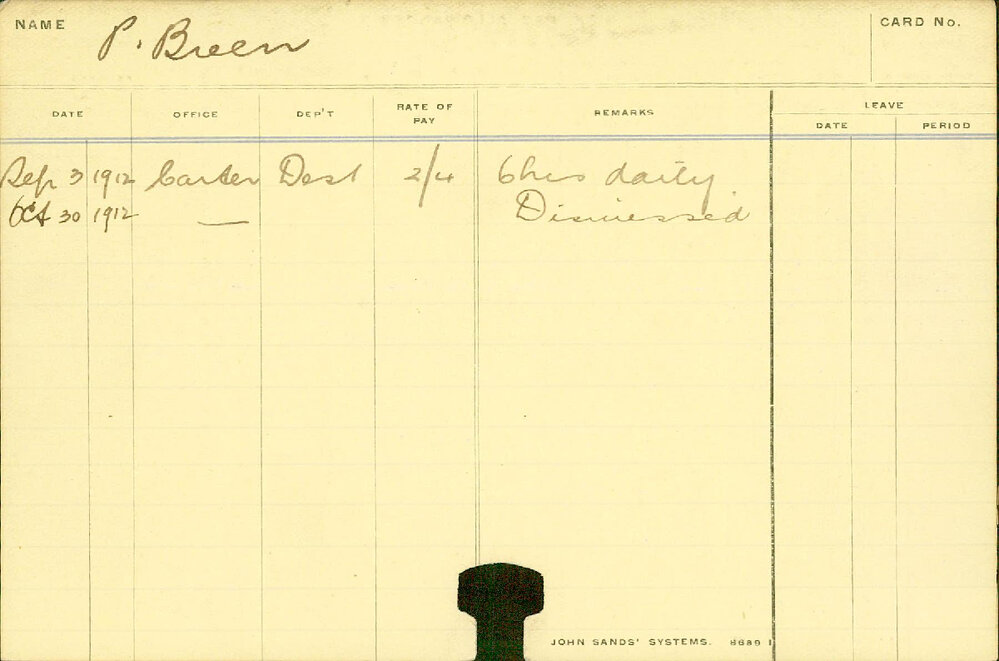 NAME P. Breen CARD No.
DATE OFFICE DEP'T RATE OF PAY REMARKS LEAVE
DATE PERIOD
Sep 3 1912 Carter Dest 2/4 6hrs daily.
Oct 30 1912 — Dismissed
JOHN SANDS' SYSTEMS. 8689 1